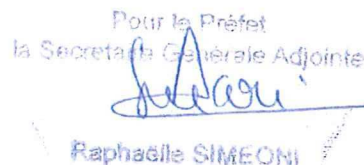 Pour le Préfet
la Secrétaire Générale Adjointe
Raphaëlle SIMEONI